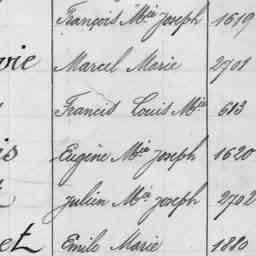 François Mie Joseph 1619
vie Marcel Marie 2701
Francis Louis Mie 613
is Eugène Mie Joseph 1620
Julien Mie Joseph 2702
et Emile Marie 1880